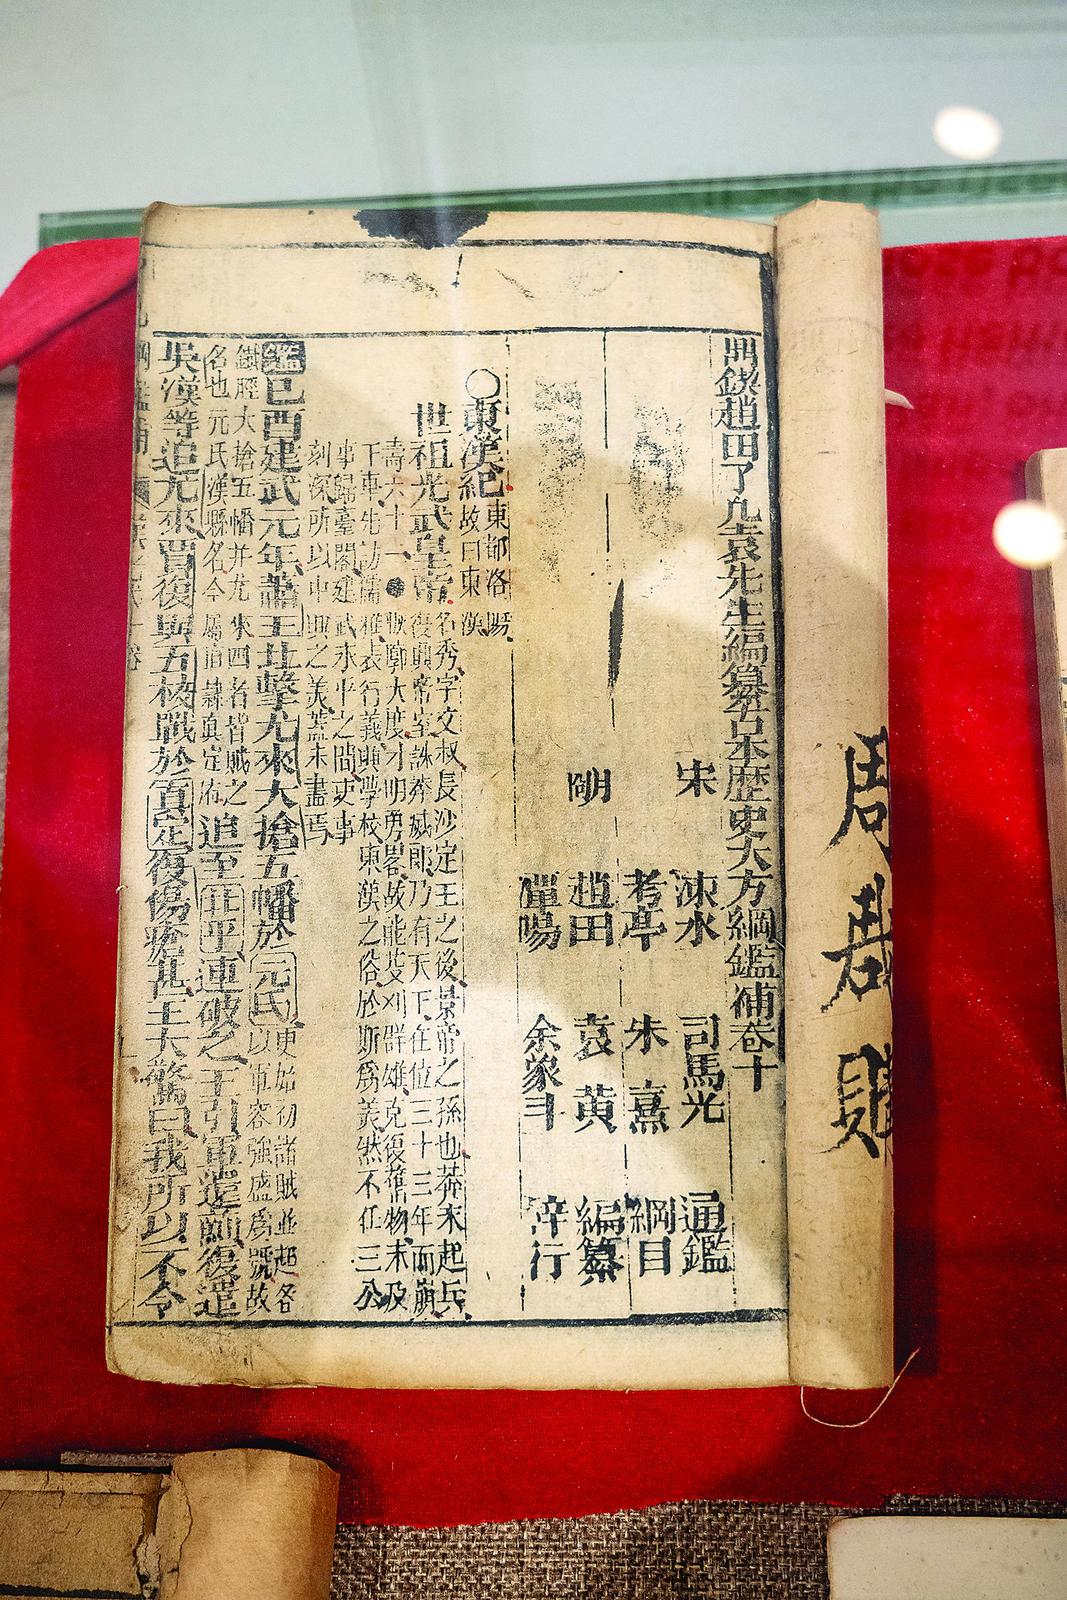 鼎鍥趙田了凡袁先生編纂古本歷史大方綱鑑補卷十
宋 涑水 司馬光 通鑑
考亭 朱熹 綱目
明 趙田 袁黃 編纂
潭陽 余象斗 梓行
○東漢紀 東都洛陽
故曰東漢
世祖光武皇帝 名秀字文叔長沙定王之後景帝之孫也莽末起兵
復興帝室誅莽滅郎乃有天下在位三十三年而崩
壽六十二 恢廓大度才明勇畧故能芟刈群雄克復舊物未及
下車先訪儒雅表行義興學校東漢之俗於斯為美然不任三公
事歸臺閣建武永平之間吏事
刻深所以中興之美蓋未盡焉
鑑己酉建武元年蕭王北擊尤來大搶五幡於元氏 更始初諸賊並起各
以軍容強盛為號故
鐵脛大搶五幡并尤來四者皆賊之
名也元氏漢縣名今屬 隸真定府 追至北平連破之王引軍遠前後遣
吳漢等追尤來賈復與五校戰於真定復傷瘡甚王大驚曰我所以不令
周